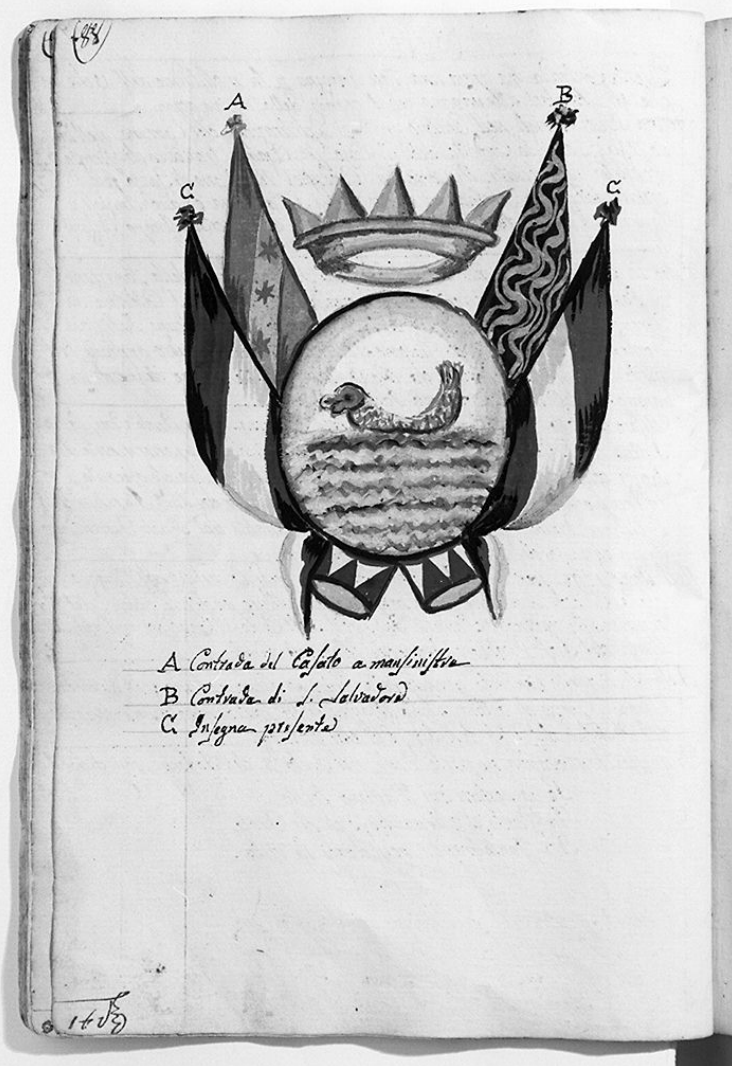 A
B
C
C
A Contrada del Casato a mansinistra
B Contrada di S. Salvadore
C Insegna presente